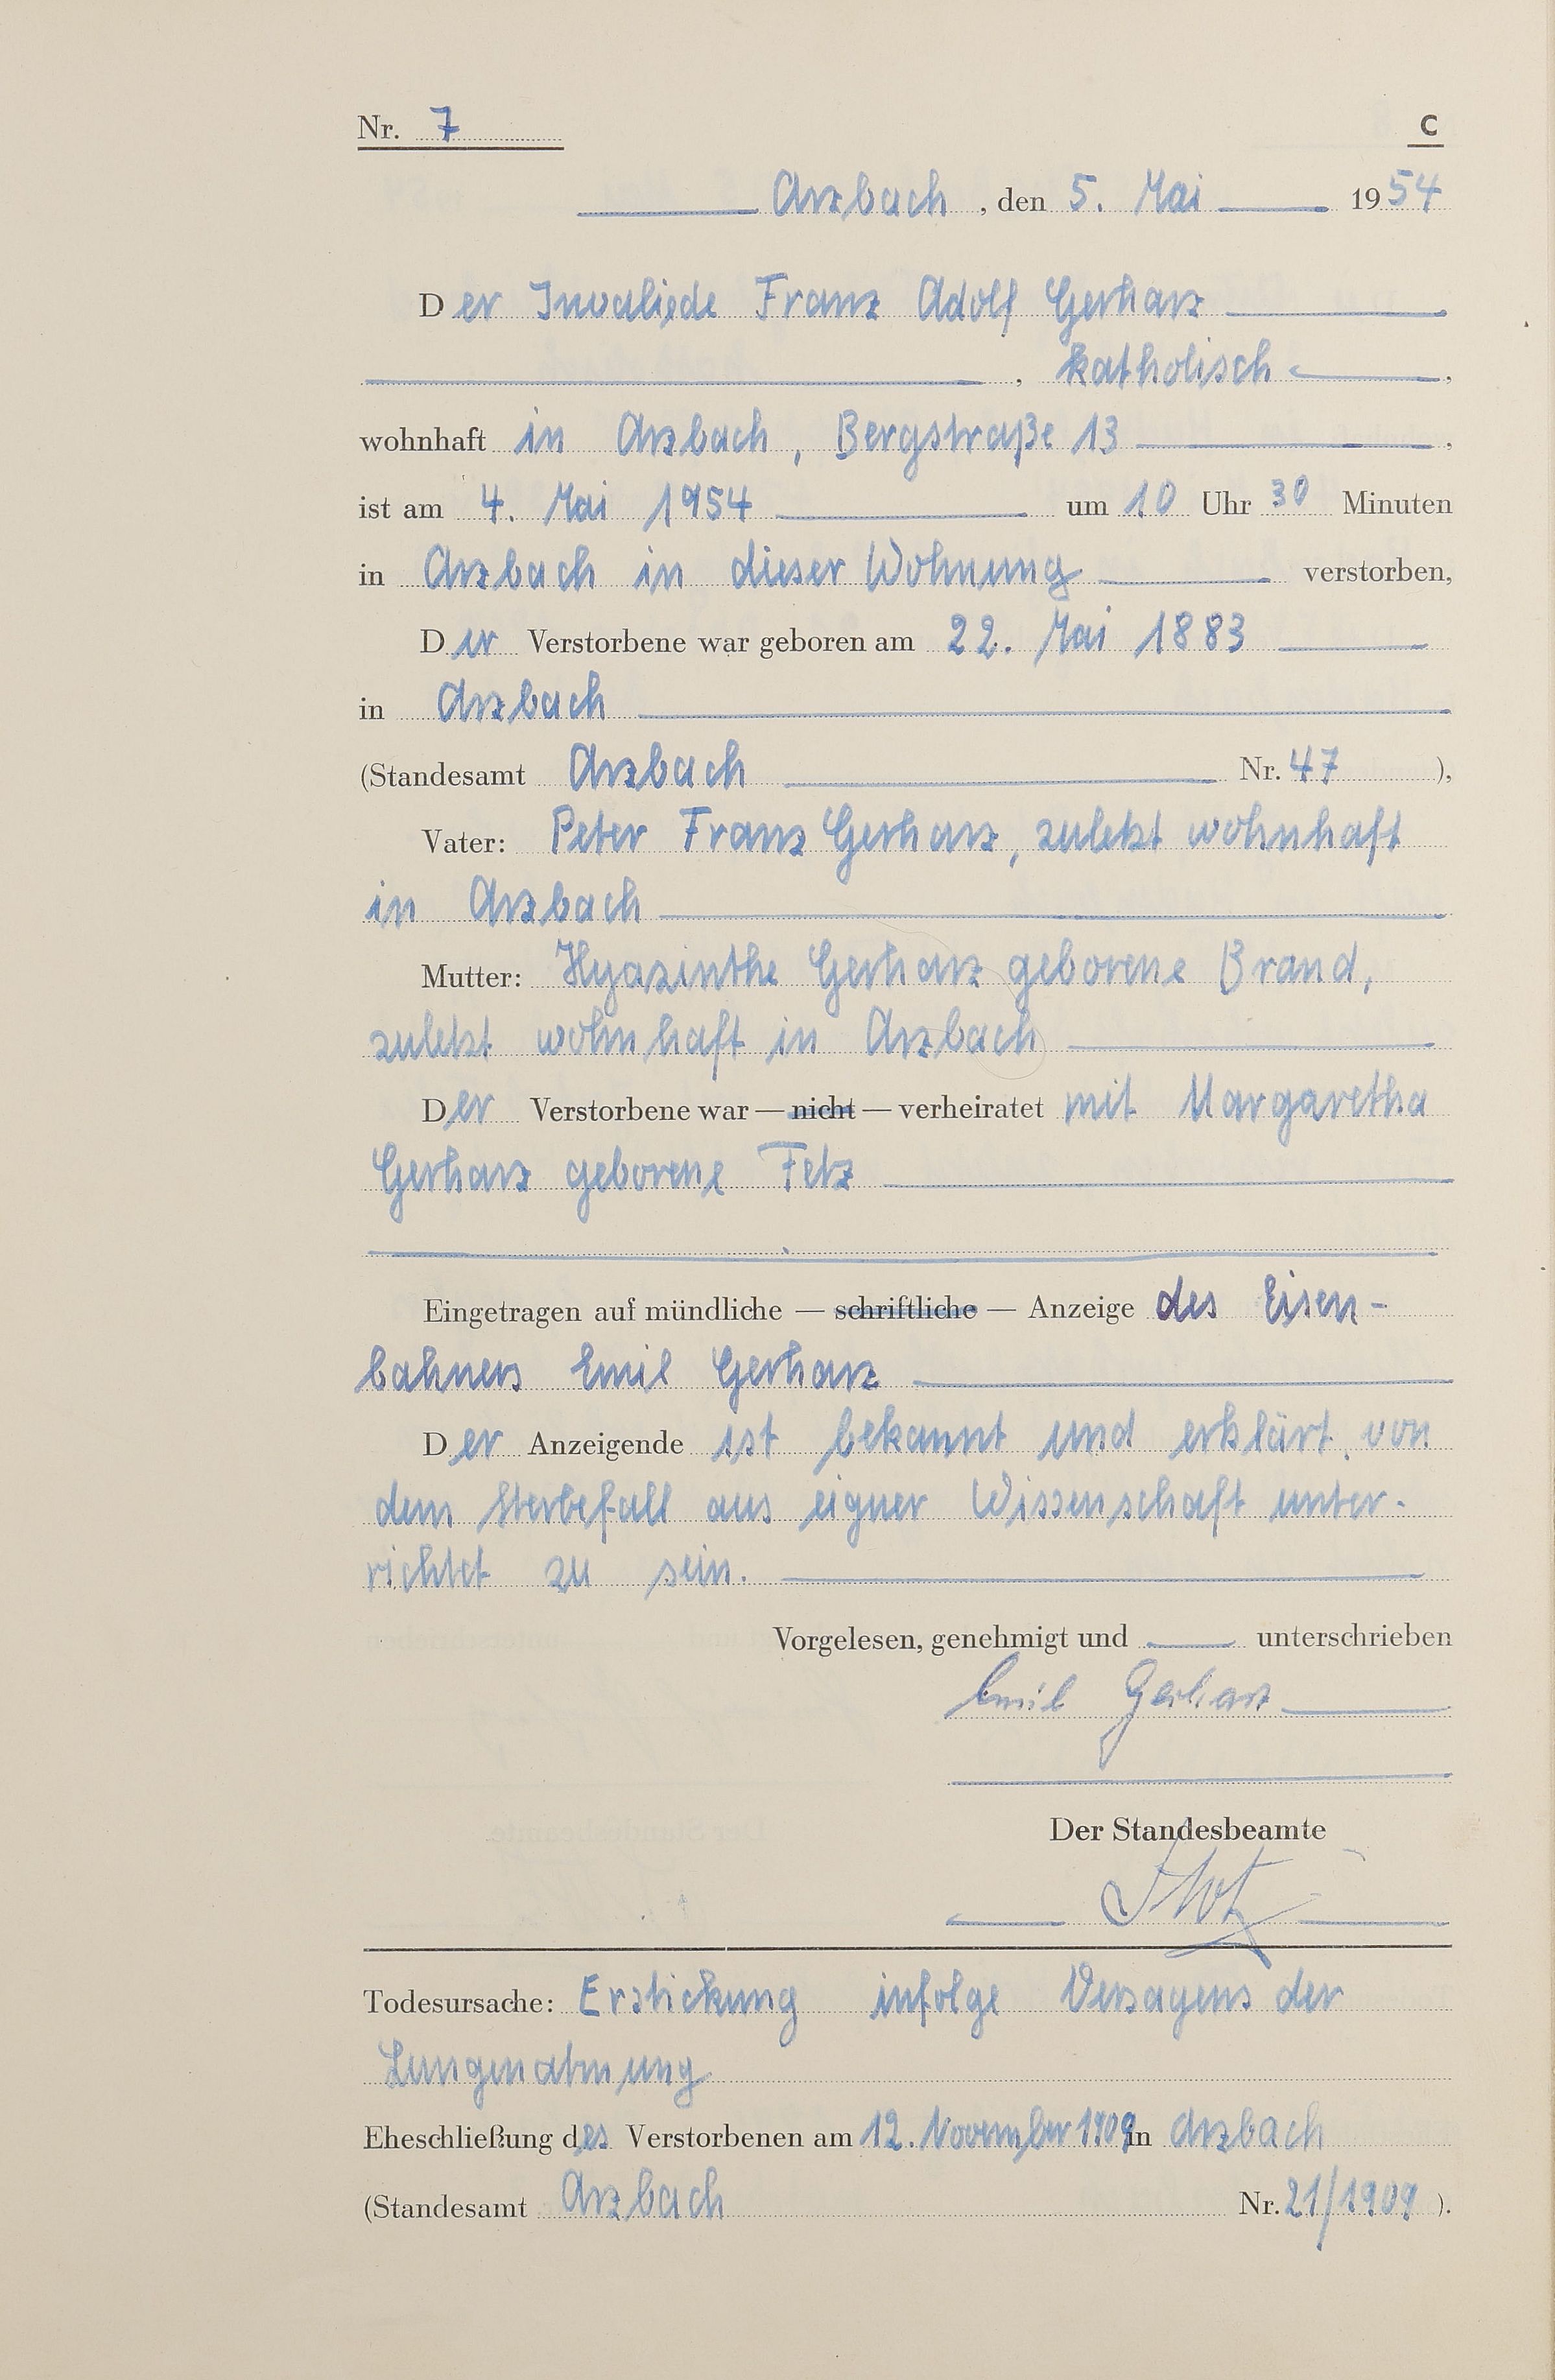 Nr. 7 C
Arzbach, den 5. Mai 1954
Der Invaliede Franz Adolf Gerharz
, katholisch,
wohnhaft in Arzbach, Bergstraße 13,
ist am 4. Mai 1954 um 10 Uhr 30 Minuten
in Arzbach in dieser Wohnung verstorben,
Der Verstorbene war geboren am 22. Mai 1883
in Arzbach
(Standesamt Arzbach Nr. 47),
Vater: Peter Franz Gerharz, zuletzt wohnhaft
in Arzbach
Mutter: Hyazinthe Gerharz geborene Brand,
zuletzt wohnhaft in Arzbach
Der Verstorbene war — nicht — verheiratet mit Margaretha
Gerharz geborene Fetz
Eingetragen auf mündliche — schriftliche — Anzeige des Eisen-
bahners Emil Gerharz
Der Anzeigende ist bekannt und erklärt, von
dem Sterbefall aus eigner Wissenschaft unter-
richtet zu sein.
Vorgelesen, genehmigt und unterschrieben
Emil Gerharz
Der Standesbeamte
Todesursache: Erstickung infolge Versagens der
Lungenatmung
Eheschließung des Verstorbenen am 12. November 1909 in Arzbach
(Standesamt Arzbach Nr. 21/1909).